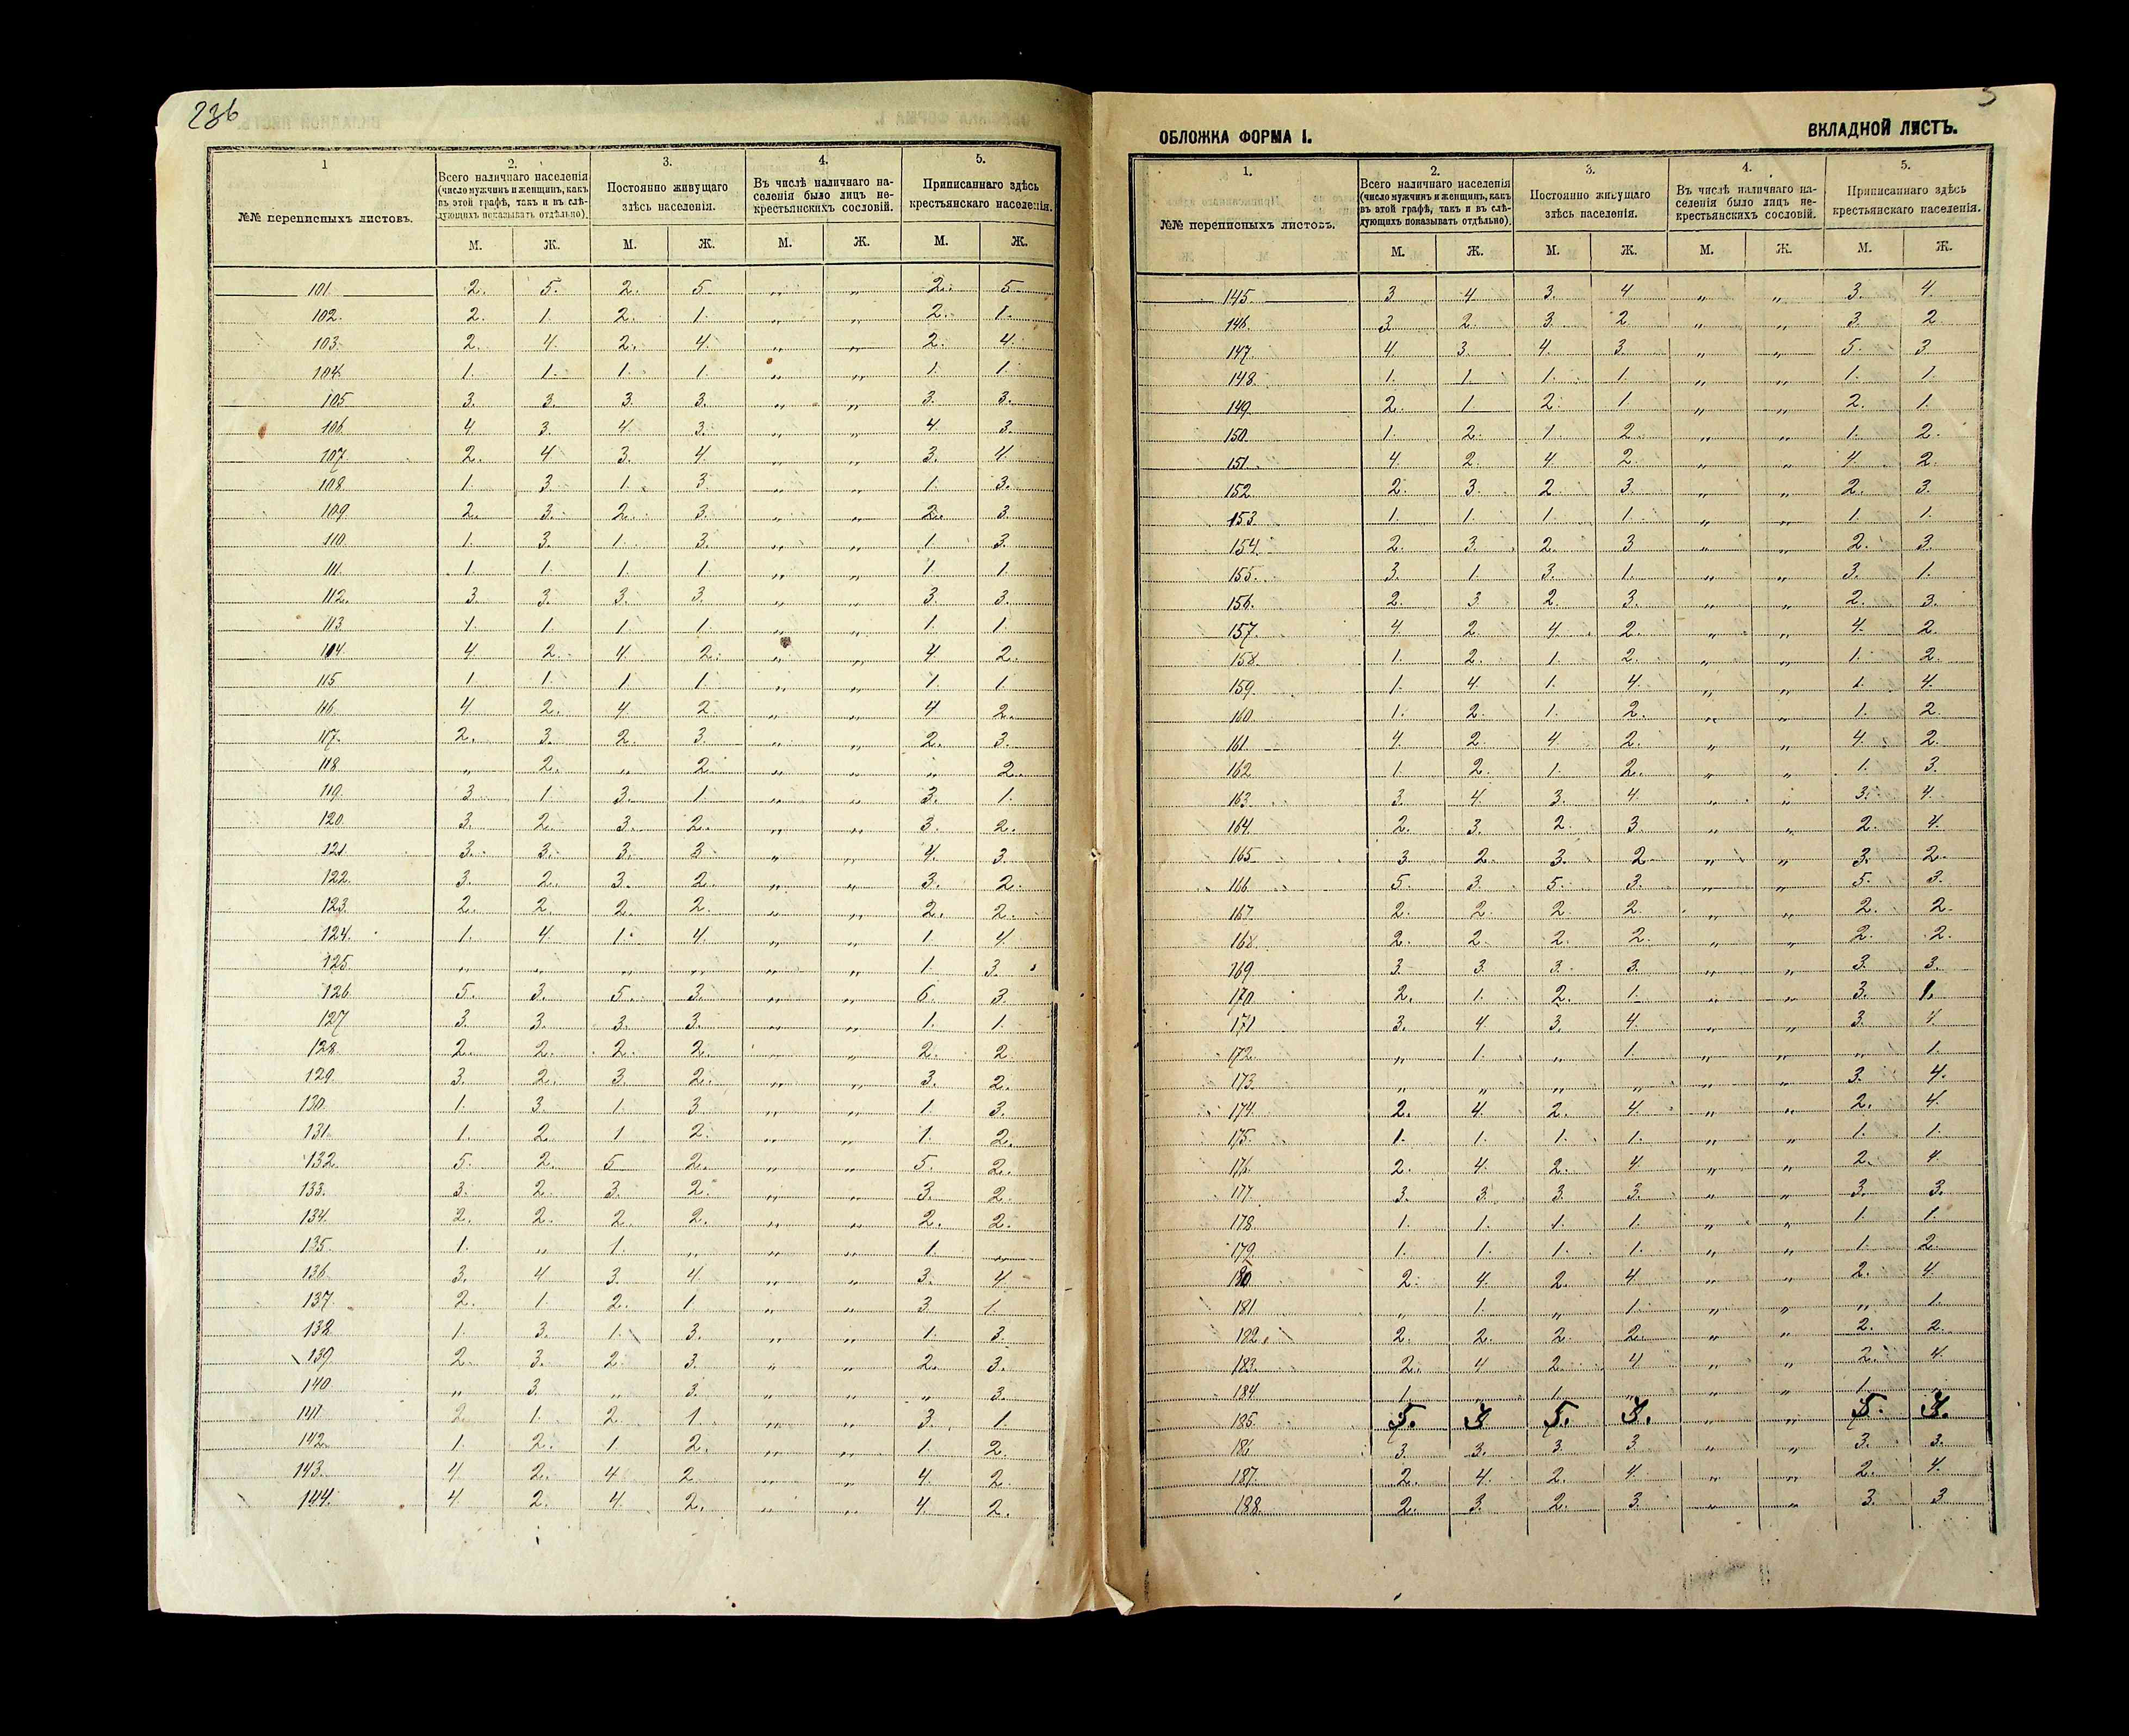 236
1 2. 3. 4. 5.
№№ переписныхъ листовъ.
Всего наличнаго населенія (число мужчинъ и женщинъ, какъ въ этой графѣ, такъ и въ слѣдующихъ показывать отдѣльно).
Постоянно живущаго здѣсь населенія.
Въ числѣ наличнаго населенія было лицъ некрестьянскихъ сословій.
Приписаннаго здѣсь крестьянскаго населенія.
М. Ж. М. Ж. М. Ж. М. Ж.
101 2. 5. 2. 5 „ „ 2. 5
102. 2. 1. 2. 1. „ „ 2. 1.
103. 2. 4. 2. 4. „ „ 2. 4.
104. 1. 1. 1. 1. „ „ 1. 1.
105 3. 3. 3. 3. „ „ 3. 3.
106 4 3 4 3. „ „ 4. 3.
107 2. 4 3. 4. „ „ 3. 4
108 1. 3. 1. 3 „ „ 1. 3.
109 2. 3. 2. 3. „ „ 2. 3
110 1. 3. 1. 3. „ „ 1. 3.
111. 1. 1. 1. 1 „ „ 1. 1.
112. 3. 3. 3. 3. „ „ 3 3.
113 1. 1. 1. 1. „ „ 1. 1.
114 4 2. 4. 2. „ „ 4 2.
115 1. 1. 1. 1. „ „ 1. 1.
116. 4. 2. 4 2. „ „ 4 2.
117. 2. 3. 2. 3. „ „ 2. 3.
118 „ 2. „ 2. „ „ „ 2.
119. 3 1. 3. 1. „ „ 3. 1.
120 3. 2. 3. 2. „ „ 3. 2.
121 3. 3. 3. 3 „ „ 4. 3.
122. 3. 2. 3. 2. „ „ 3. 2.
123. 2. 2. 2. 2. „ „ 2. 2.
124. 1. 4. 1. 4. „ „ 1. 4.
125. „ „ „ „ „ „ 1. 3.
126 5. 3. 5. 3. „ „ 6. 3.
127 3. 3. 3. 3. „ „ 1. 1.
128 2. 2. 2. 2. „ „ 2. 2
129. 3. 2. 3. 2. „ „ 3. 2.
130. 1. 3. 1. 3. „ „ 1. 3.
131. 1. 2. 1 2. „ „ 1. 2.
132. 5. 2. 5 2. „ „ 5. 2.
133. 3. 2. 3. 2. „ „ 3. 2.
134. 2. 2. 2. 2. „ „ 2. 2.
135. 1. „ 1. „ „ „ 1. „
136 3. 4 3. 4. „ „ 3. 4
137 2. 1. 2. 1 „ „ 3. 1.
138 1. 3. 1. 3. „ „ 1. 3
139 2. 3. 2 3. „ „ 2. 3.
140 „ 3. „ 3. „ „ „ 3.
141 2. 1. 2 1 „ „ 3. 1.
142. 1. 2. 1. 2. „ „ 1. 2.
143. 4. 2. 4 2 „ „ 4. 2
144. 4. 2. 4. 2. „ „ 4. 2.
ОБЛОЖКА ФОРМА I.
ВКЛАДНОЙ ЛИСТЪ.
1. 2. 3. 4. 5.
№№ переписныхъ листовъ.
Всего наличнаго населенія (число мужчинъ и женщинъ, какъ въ этой графѣ, такъ и въ слѣдующихъ показывать отдѣльно).
Постоянно живущаго здѣсь населенія.
Въ числѣ наличнаго населенія было лицъ некрестьянскихъ сословій.
Приписаннаго здѣсь крестьянскаго населенія.
М. Ж. М. Ж. М. Ж. М. Ж.
145. 3 4. 3. 4 „ „ 3. 4.
146. 3 2. 3. 2 „ „ 3. 2
147. 4. 3. 4. 3. „ „ 5. 3
148. 1. 1. 1. 1. „ „ 1. 1.
149. 2. 1. 2. 1. „ „ 2. 1.
150. 1. 2. 1. 2. „ „ 1. 2.
151. 4. 2. 4. 2. „ „ 4. 2.
152 2. 3. 2. 3. „ „ 2. 3.
153. 1. 1. 1. 1. „ „ 1. 1.
154. 2. 3. 2. 3 „ „ 2. 3.
155. 3. 1. 3. 1. „ „ 3. 1.
156. 2. 3. 2. 3. „ „ 2. 3.
157. 4. 2 4. 2. „ „ 4. 2.
158. 1. 2. 1. 2. „ „ 1. 2.
159. 1. 4. 1. 4. „ „ 1. 4.
160 1. 2. 1. 2. „ „ 1. 2.
161. 4. 2. 4. 2. „ „ 4. 2.
162 1. 2. 1. 2. „ „ 1. 3.
163. 3. 4. 3. 4. „ „ 3. 4.
164. 2. 3. 2. 3. „ „ 2. 4.
165 3 2. 3. 2. „ „ 3. 2.
166. 5. 3. 5. 3. „ „ 5. 3.
167. 2. 2. 2. 2. „ „ 2. 2.
168. 2. 2. 2. 2. „ „ 2. 2.
169 3. 3. 3. 3. „ „ 3. 3.
170 2. 1. 2. 1. „ „ 3. 1.
171 3. 4. 3. 4. „ „ 3. 4.
172. „ 1. „ 1. „ „ „ 1.
173. „ „ „ „ „ „ 3. 4.
174. 2. 4. 2. 4. „ „ 2. 4.
175. 1. 1. 1. 1. „ „ 1. 1.
176. 2. 4. 2. 4. „ „ 2. 4.
177. 3. 3. 3. 3. „ „ 3. 3.
178 1. 1. 1. 1. „ „ 1. 1.
179. 1. 1. 1. 1. „ „ 1. 2.
180 2. 4. 2. 4. „ „ 2. 4.
181 „ 1. „ 1. „ „ „ 1.
182. 2. 2. 2. 2. „ „ 2. 2.
183. 2. 4 2. 4 „ „ 2. 4.
184 1. „ 1. „ „ „ 1. „
185. 5. 5. „ „ 5.
186 3. 3. 3 3 „ „ 3. 3.
187. 2. 4. 2. 4. „ „ 2. 4.
188 2. 3. 2. 3. „ „ 3. 3